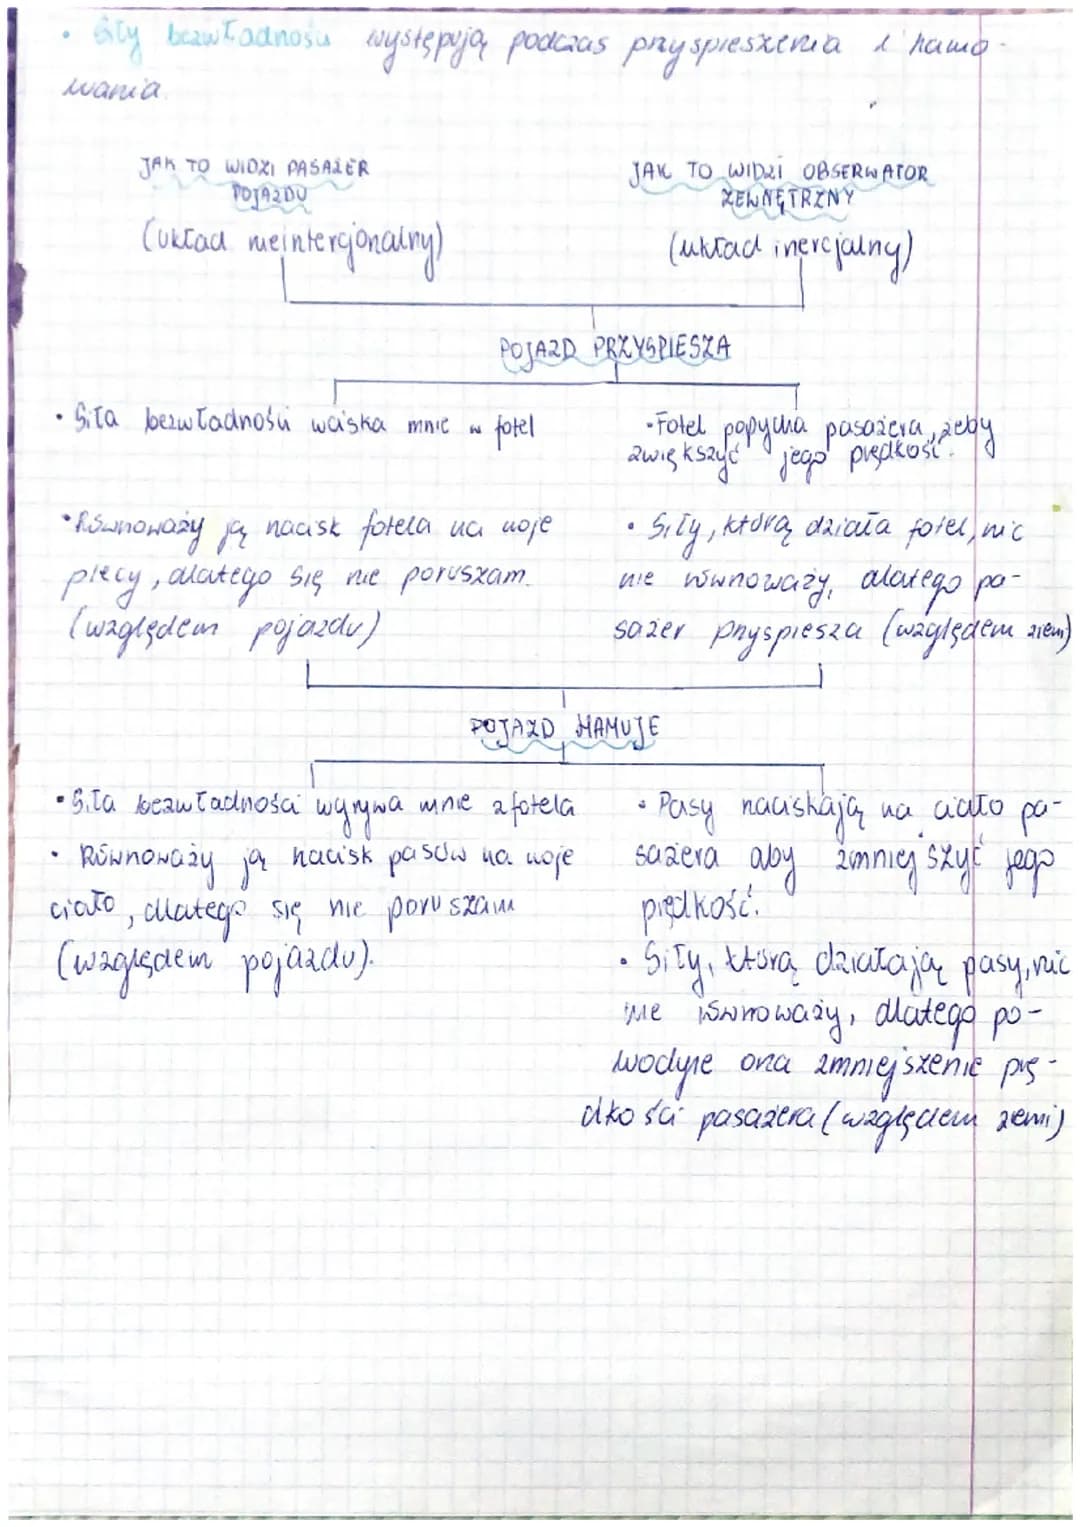 • Siły bezwładności występują podczas przyspieszenia i hamo-
wania.
JAK TO WIDZI PASAŻER
POJAZDU
(układ nieintercjonalny)
JAK TO WIDZI OBSERWATOR
ZEWNĘTRZNY
(układ inercjalny)
POJAZD PRZYSPIESZA
• Siła bezwładności wciska mnie w fotel
• Równoważy ją nacisk fotela na moje
plecy, dlatego się nie poruszam.
(względem pojazdu)
• Fotel popycha pasażera, żeby
zwiększyć jego prędkość.
• Siły, którą działa fotel, nic
nie równoważy, dlatego pa-
sażer przyspiesza (względem ziemi)
POJAZD HAMUJE
• Siła bezwładności wyrywa mnie z fotela
• Równoważy ją nacisk pasów na moje
ciało, dlatego się nie poruszam
(względem pojazdu).
• Pasy naciskają na ciało pa-
sażera aby zmniejszyć jego
prędkość.
• Siły, którą działają pasy, nic
nie równoważy, dlatego po-
woduje ona zmniejszenie prę-
dkości pasażera (względem ziemi)